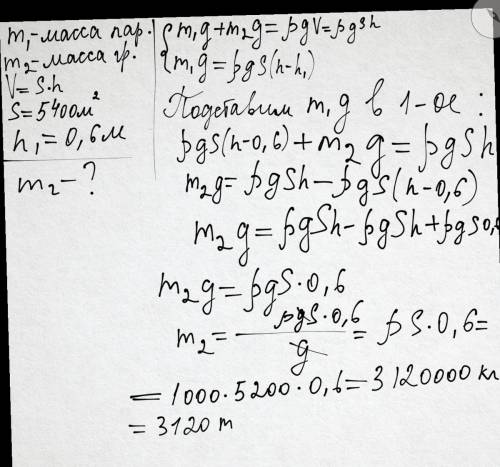 m₁-масса пар.
m₂-масса гр.
V=S·h
S=5400м²
h₁=0,6м
m₂-?
{m₁g+m₂g=ρgV=ρgSh
{m₁g=ρgS(h-h₁)
Подставим m₁g в 1-ое:
ρgS(h-0,6)+m₂g=ρgSh
m₂g=ρgSh-ρgS(h-0,6)
m₂g=ρgSh-ρgSh+ρgS0,6
m₂g=ρgS·0,6
m₂=ρgS·0,6/g=ρS·0,6=
=1000·5200·0,6=3120000 кг
=3120 т